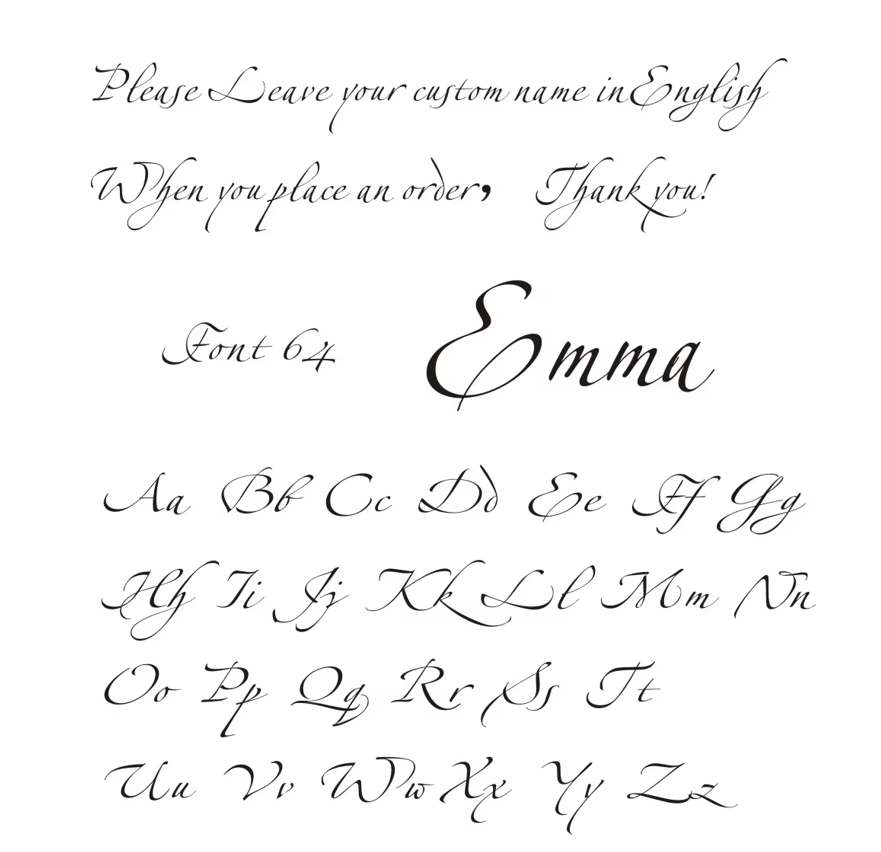 Please Leave your custom name in English
When you place an order, Thank you!
Font 64 Emma
Aa Bb Cc Dd Ee Ff Gg
Hh Ii Jj Kk Ll Mm Nn
Oo Pp Qq Rr Ss Tt
Uu Vv Ww Xx Yy Zz